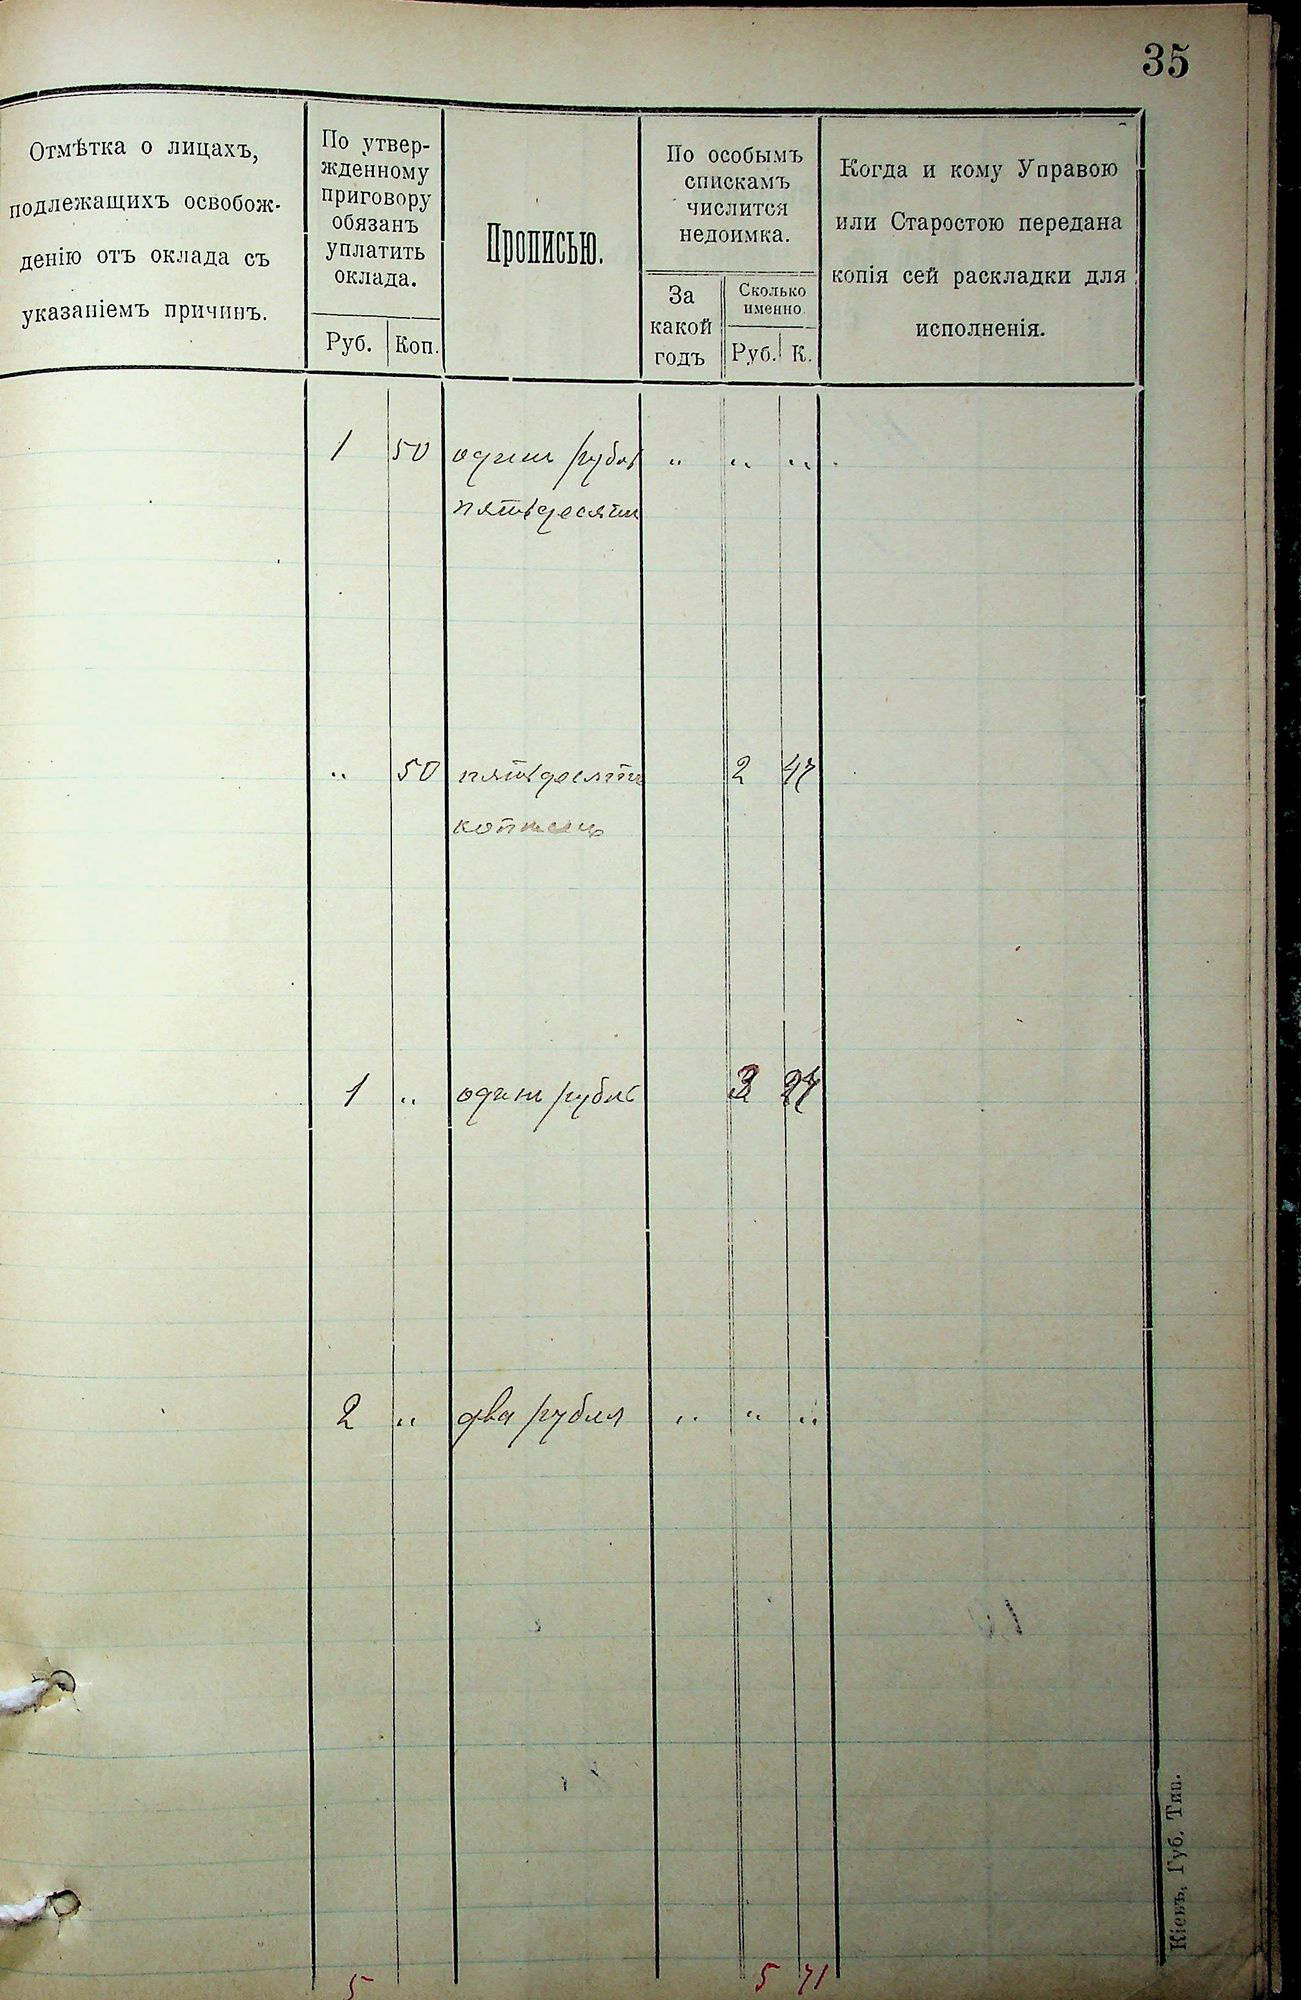 35
Отмѣтка о лицахъ,
подлежащихъ освобож-
денію отъ оклада съ
указаніемъ причинъ.
По утвер-
жденному
приговору
обязанъ
уплатить
оклада.
Руб. Коп.
Прописью.
По особымъ
спискамъ
числится
недоимка.
За
какой
годъ
Сколько
именно
Руб. К.
Когда и кому Управою
или Старостою передана
копія сей раскладки для
исполненія.
1 50 одинъ рубль " " "
пятьдесятъ
" 50 пятьдесятъ 2 47
копѣекъ
1 " одинъ рубль 3
2 " два рубля " " "
5 5 71
Кіевъ, Губ. Тип.